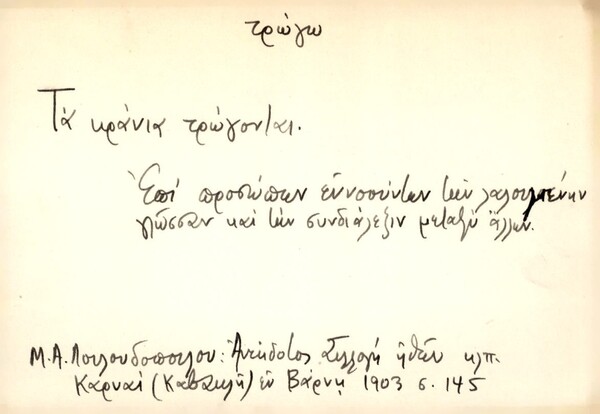 τρώγω
Τά κράνια τρώγονται.
Ἐπί προσώπων εὐνοούντων τήν λαλουμένην
γλῶσσαν καί τήν συνδιάλεξιν μεταξύ ἄλλων.
Μ.Α. Λουλουδοπούλου: Ἀνέκδοτος Συλλογή ἠθῶν κλπ.
Καρυαί (Καβακλῆ) ἐν Βάρνῃ 1903 σ. 145